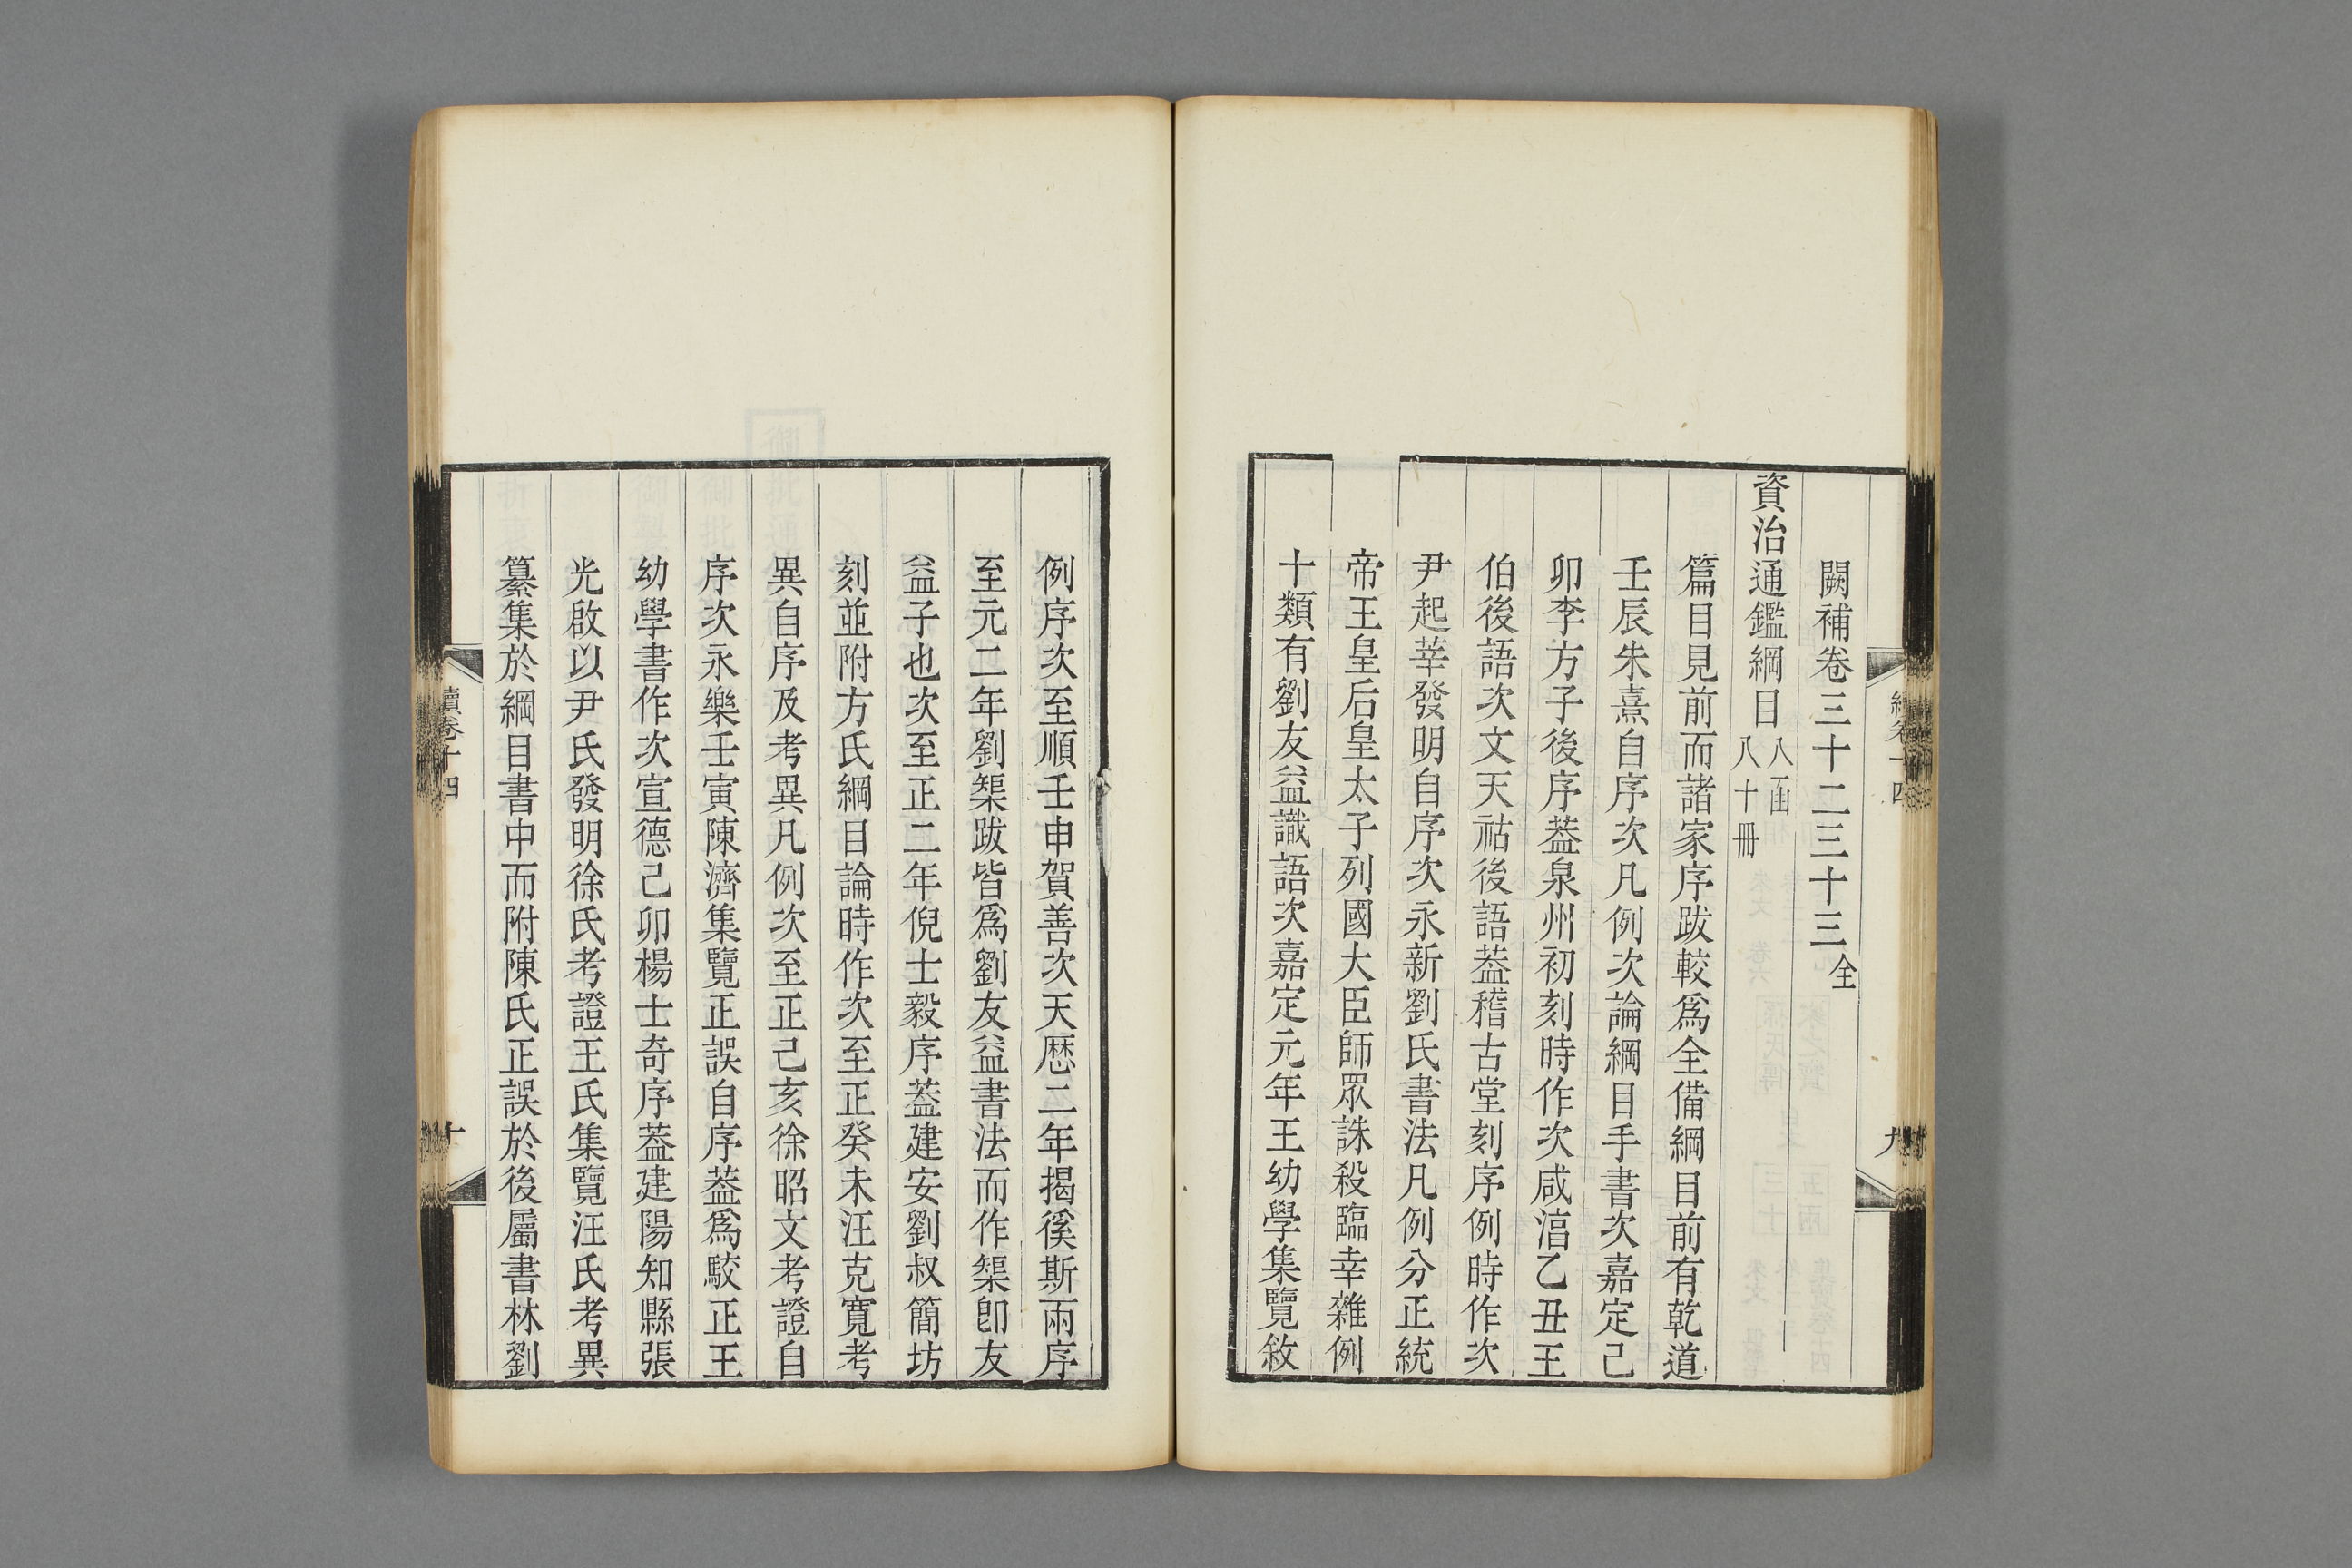 續卷十四
九
闕補卷三十二三十三全
資治通鑑綱目八函八十冊
篇目見前而諸家序跋較爲全備綱目前有乾道
壬辰朱熹自序次凡例次論綱目手書次嘉定己
卯李方子後序葢泉州初刻時作次咸淳乙丑王
伯後語次文天祐後語葢稽古堂刻序例時作次
尹起莘發明自序次永新劉氏書法凡例分正統
帝王皇后皇太子列國大臣師眾誅殺臨幸雜例
十類有劉友益識語次嘉定元年王幼學集覽敘
例序次至順壬申賀善次天厯二年揭徯斯兩序
至元二年劉榘跋皆爲劉友益書法而作榘卽友
益子也次至正二年倪士毅序葢建安劉叔簡坊
刻並附方氏綱目論時作次至正癸未汪克寬考
異自序及考異凡例次至正己亥徐昭文考證自
序次永樂壬寅陳濟集覽正誤自序葢爲駮正王
幼學書作次宣德己卯楊士奇序葢建陽知縣張
光啟以尹氏發明徐氏考證王氏集覽汪氏考異
纂集於綱目書中而附陳氏正誤於後屬書林劉
續卷十四
十